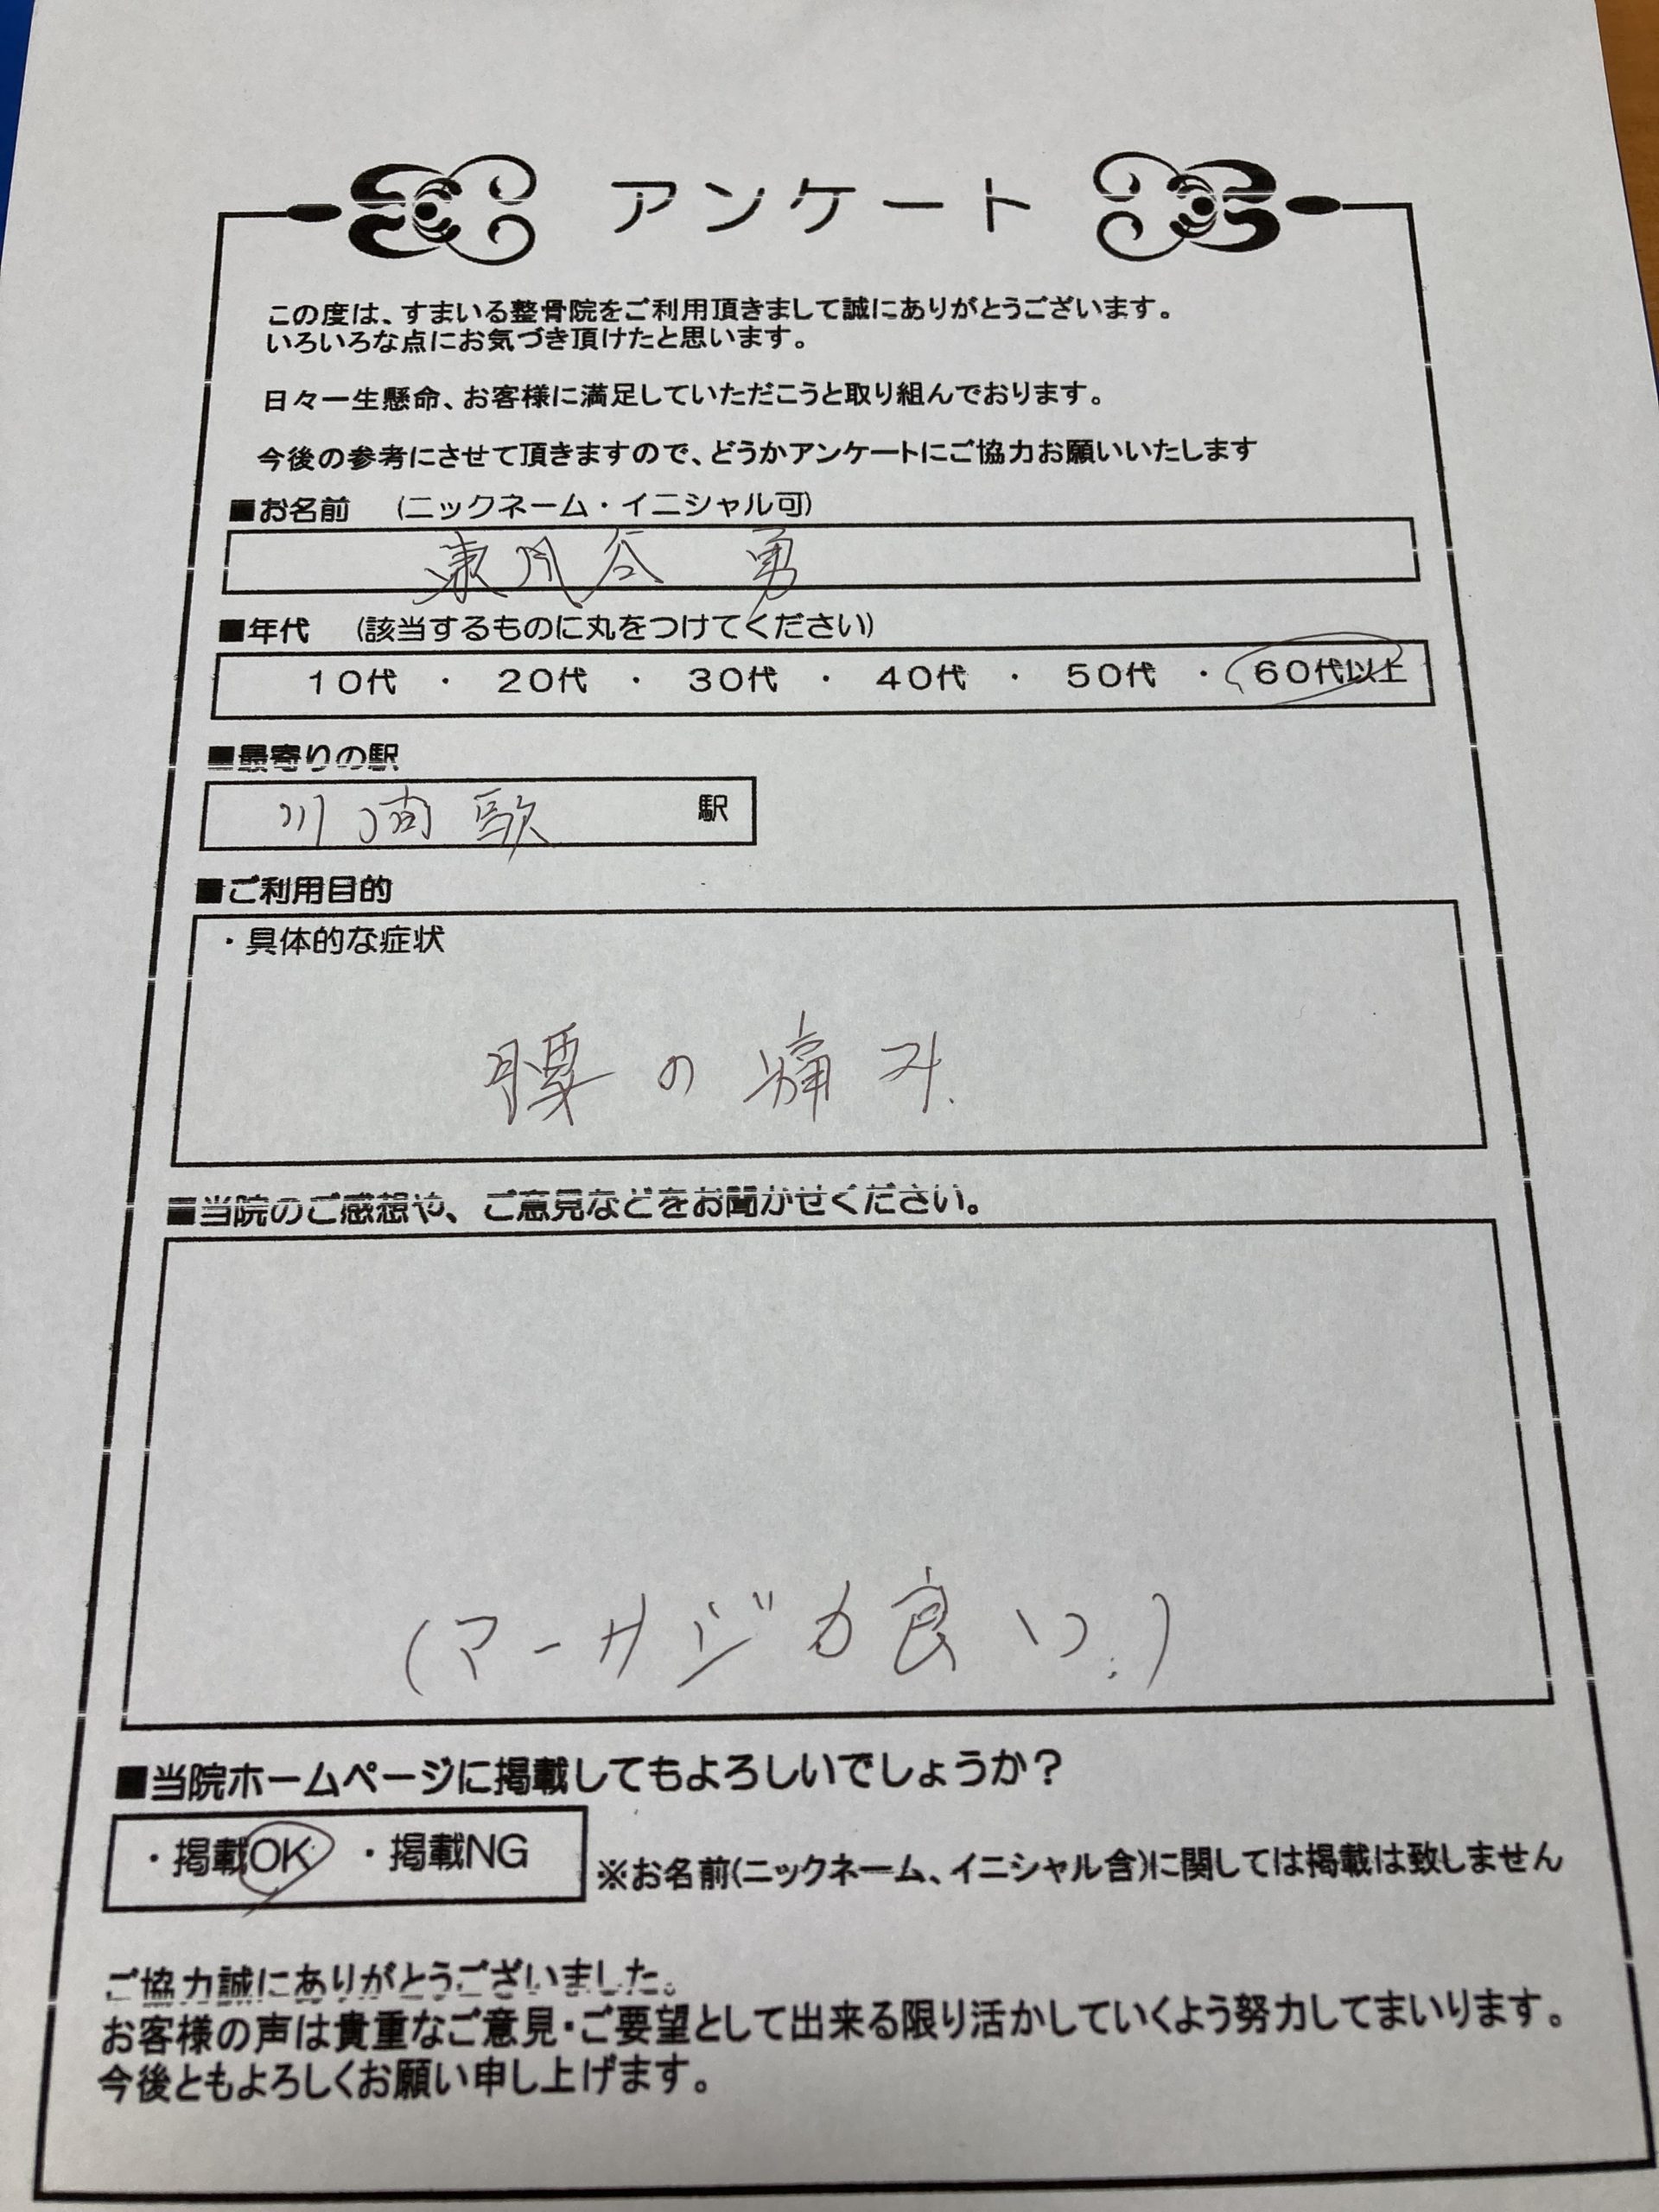 アンケート
この度は、すまいる整骨院をご利用頂きまして誠にありがとうございます。
いろいろな点にお気づき頂けたと思います。
日々一生懸命、お客様に満足していただこうと取り組んでおります。
今後の参考にさせて頂きますので、どうかアンケートにご協力お願いいたします
■お名前 (ニックネーム・イニシャル可)
谷 勇
■年代 (該当するものに丸をつけてください)
10代 ・ 20代 ・ 30代 ・ 40代 ・ 50代 ・ 60代以上
■最寄りの駅
川 駅
■ご利用目的
・具体的な症状
腰の痛み.
■当院のご感想や、ご意見などをお聞かせください。
(マーサジカ良い.)
■当院ホームページに掲載してもよろしいでしょうか？
・掲載OK ・掲載NG ※お名前(ニックネーム、イニシャル含)に関しては掲載は致しません
ご協力誠にありがとうございました。
お客様の声は貴重なご意見・ご要望として出来る限り活かしていくよう努力してまいります。
今後ともよろしくお願い申し上げます。